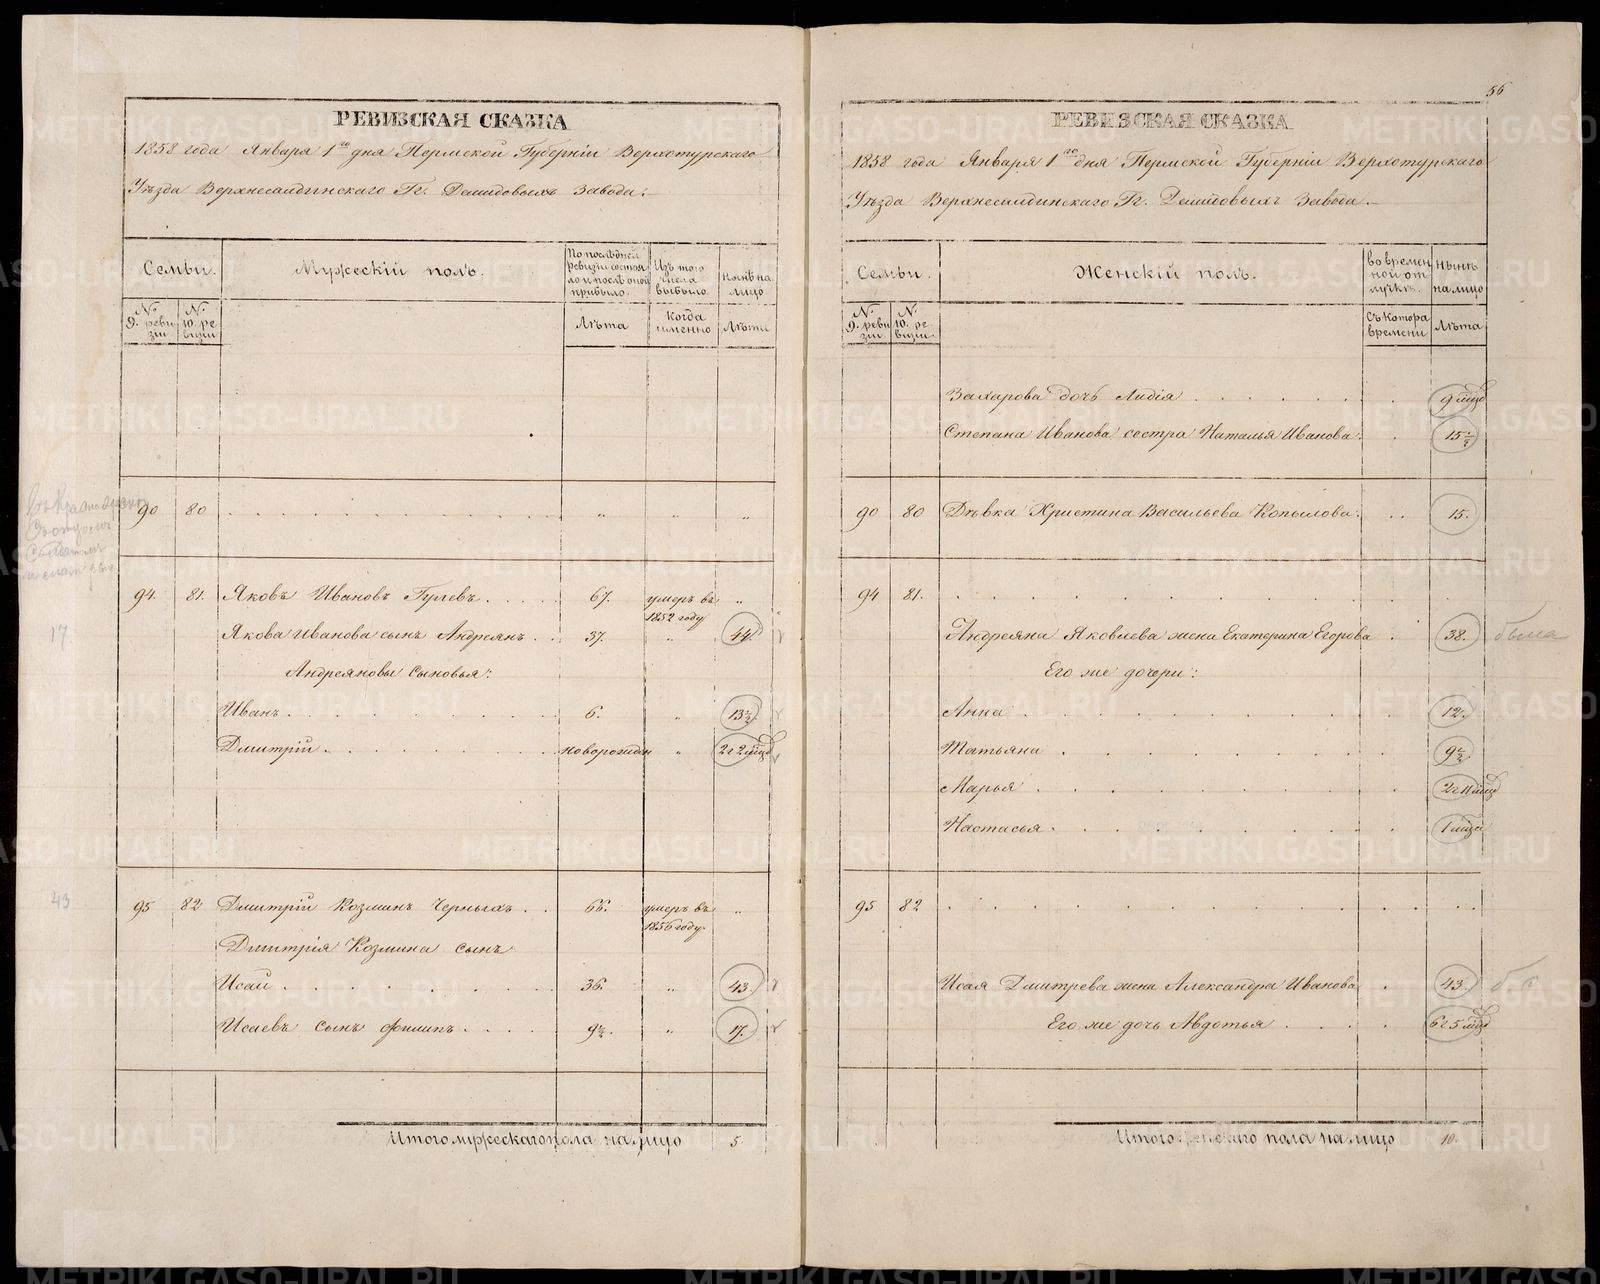 56
РЕВИЗСКАЯ СКАЗКА
1858 года Января 1го дня Пермской Губерніи Верхотурскаго
Уѣзда Верхнесалдинскаго Гг. Демидовыхъ завода:
Семьи.
Мужескій полъ.
По послѣдней ревизіи состояло и послѣ оной прибыло.
Изъ того числа выбыло.
Нынѣ на лицо
№ 9. ревизіи
№ 10. ревизіи
Лѣта
Когда именно
Лѣта
90 80 „ „ „
94. 81. Яковъ Ивановъ Гулевъ 67. умеръ въ 1852 году „
17
Якова Иванова сынъ Андреянъ 37. „ 44
Андреяновы сыновья:
Иванъ 6. „ 13½
Дмитрій новорожден „ 2г 2 мцѣ
43
95 82 Дмитрій Козминъ Черныхъ 66. умеръ въ 1856 году „
Дмитрія Козмина сынъ
Исай 36. „ 43.
Исаевъ сынъ Филипъ 9½ „ 17.
Итого мужескаго пола на лицо 5
РЕВИЗСКАЯ СКАЗКА
1858 года Января 1го дня Пермской Губерніи Верхотурскаго
Уѣзда Верхнесалдинскаго Гг. Демидовыхъ завода.
Семьи.
Женскій полъ.
Во временной отлучкѣ.
Нынѣ на лицо
№ 9. ревизіи
№ 10. ревизіи
Съ котора времени
Лѣта
Захарова дочь Лидія 9 мцѣ
Степана Иванова сестра Наталья Иванова 15½
90 80 Дѣвка Христина Васильева Копылова 15.
94 81.
Андреяна Яковлева жена Екатерина Егорова 38.
Его же дочери:
Анна 12.
Татьяна 9½
Марья 2г 11 мцѣ
Настасья 1 мцъ
95 82
Исая Дмитрева жена Александра Иванова 43.
Его же дочь Авдотья 6г 5 мцѣ
Итого женскаго пола на лицо 10.
METRIKI.GASO-URAL.RU